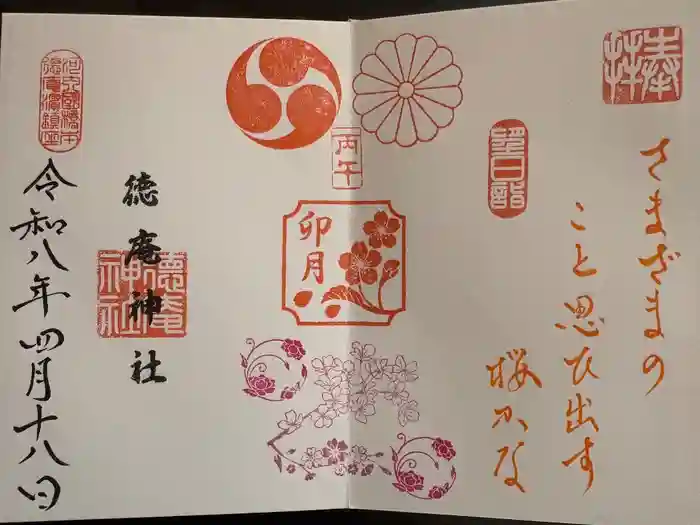 奉拝
さまざまの
こと思ひ出す
桜かな
望日詣
丙午
卯月
徳庵神社
徳庵神社
令和八年四月十八日